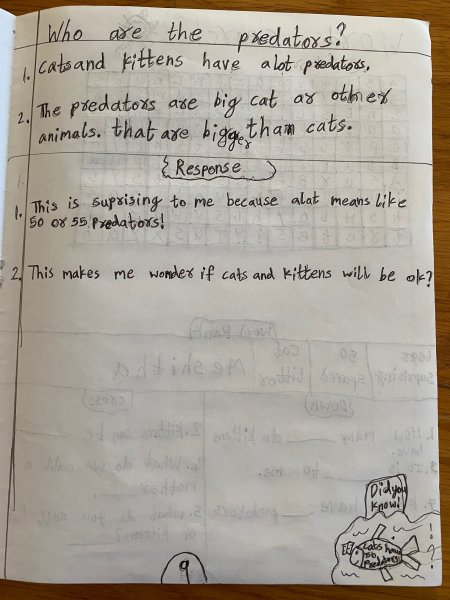 Who are the predators?
1. Cats and kittens have a lot predators,
2. The predators are big cat or other
animals. that are bigger than cats.
Response
1. This is suprising to me because alat means like
50 or 55 predators!
2. This makes me wonder if cats and kittens will be ok?
Did you
know!
Cats have
50
Predators!
9